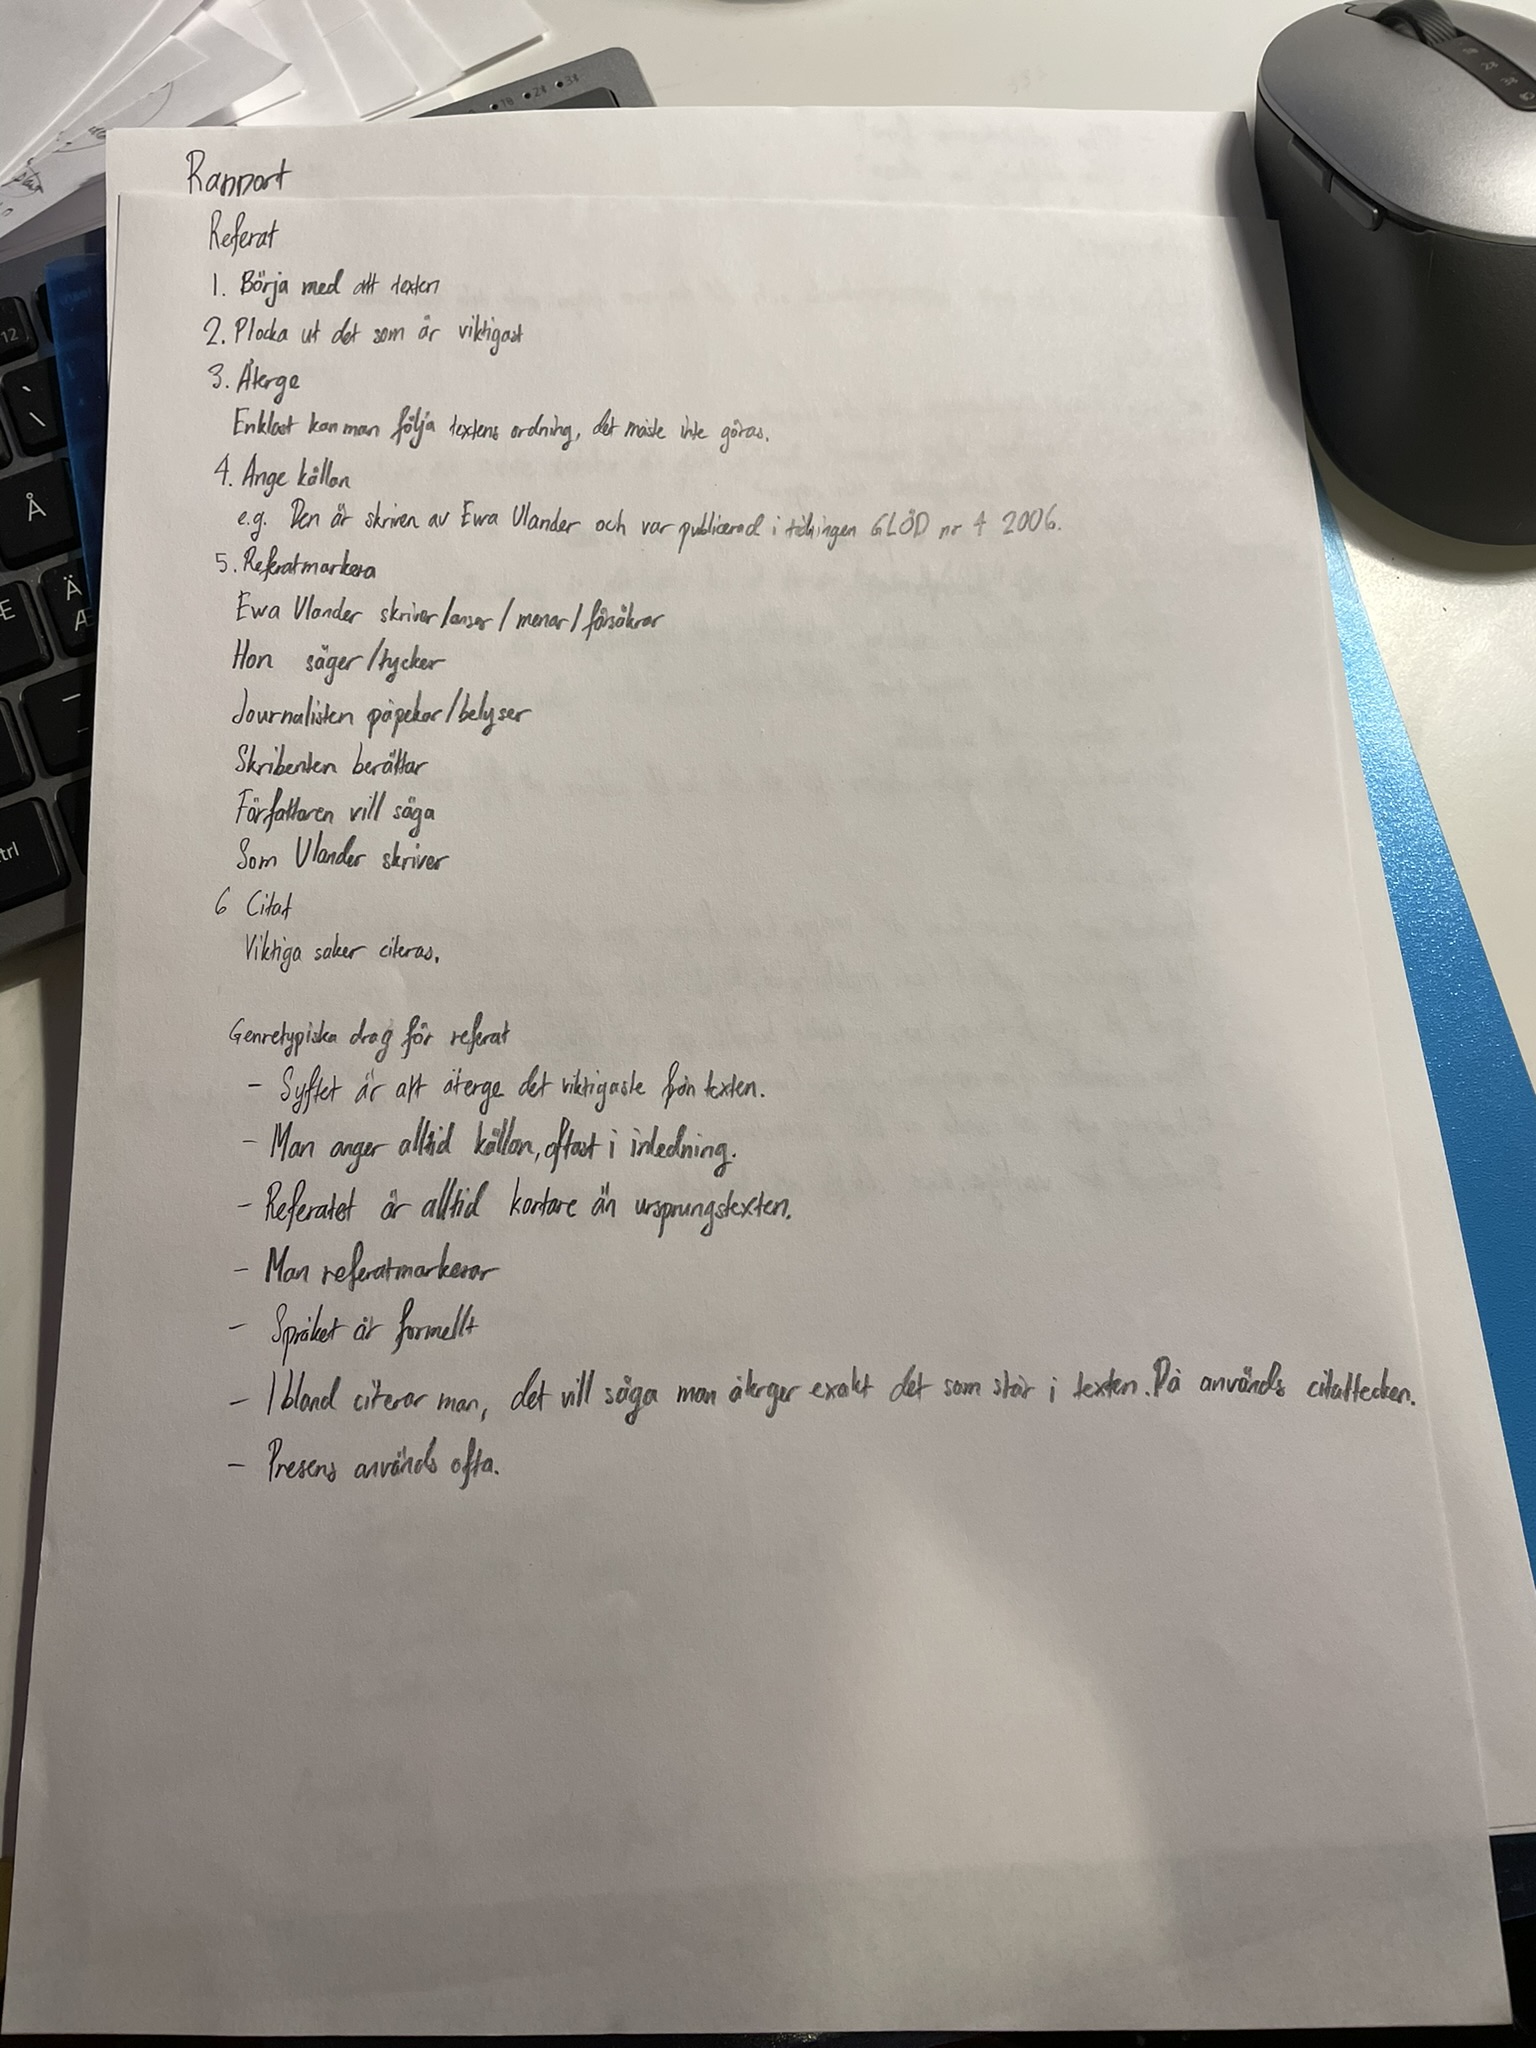 Rapport
Referat
1. Börja med att texten
2. Plocka ut det som är viktigast
3. Återge
Enklast kan man följa textens ordning, det måste inte göras.
4. Ange källan
e.g. Den är skriven av Ewa Ulander och var publicerad i tidningen GLÖD nr 4 2006.
5. Referatmarkera
Ewa Ulander skriver/anser/menar/försäkrar
Hon säger/tycker
Journalisten påpekar/belyser
Skribenten berättar
Författaren vill säga
Som Ulander skriver
6 Citat
Viktiga saker citeras.
Genretypiska drag för referat
- Syftet är att återge det viktigaste från texten.
- Man anger alltid källan, oftast i inledning.
- Referatet är alltid kortare än ursprungstexten.
- Man referatmarkerar
- Språket är formellt
- Ibland citerar man, det vill säga man återger exakt det som står i texten. Då används citattecken.
- Presens används ofta.
12
Å
Ä
Æ
trl